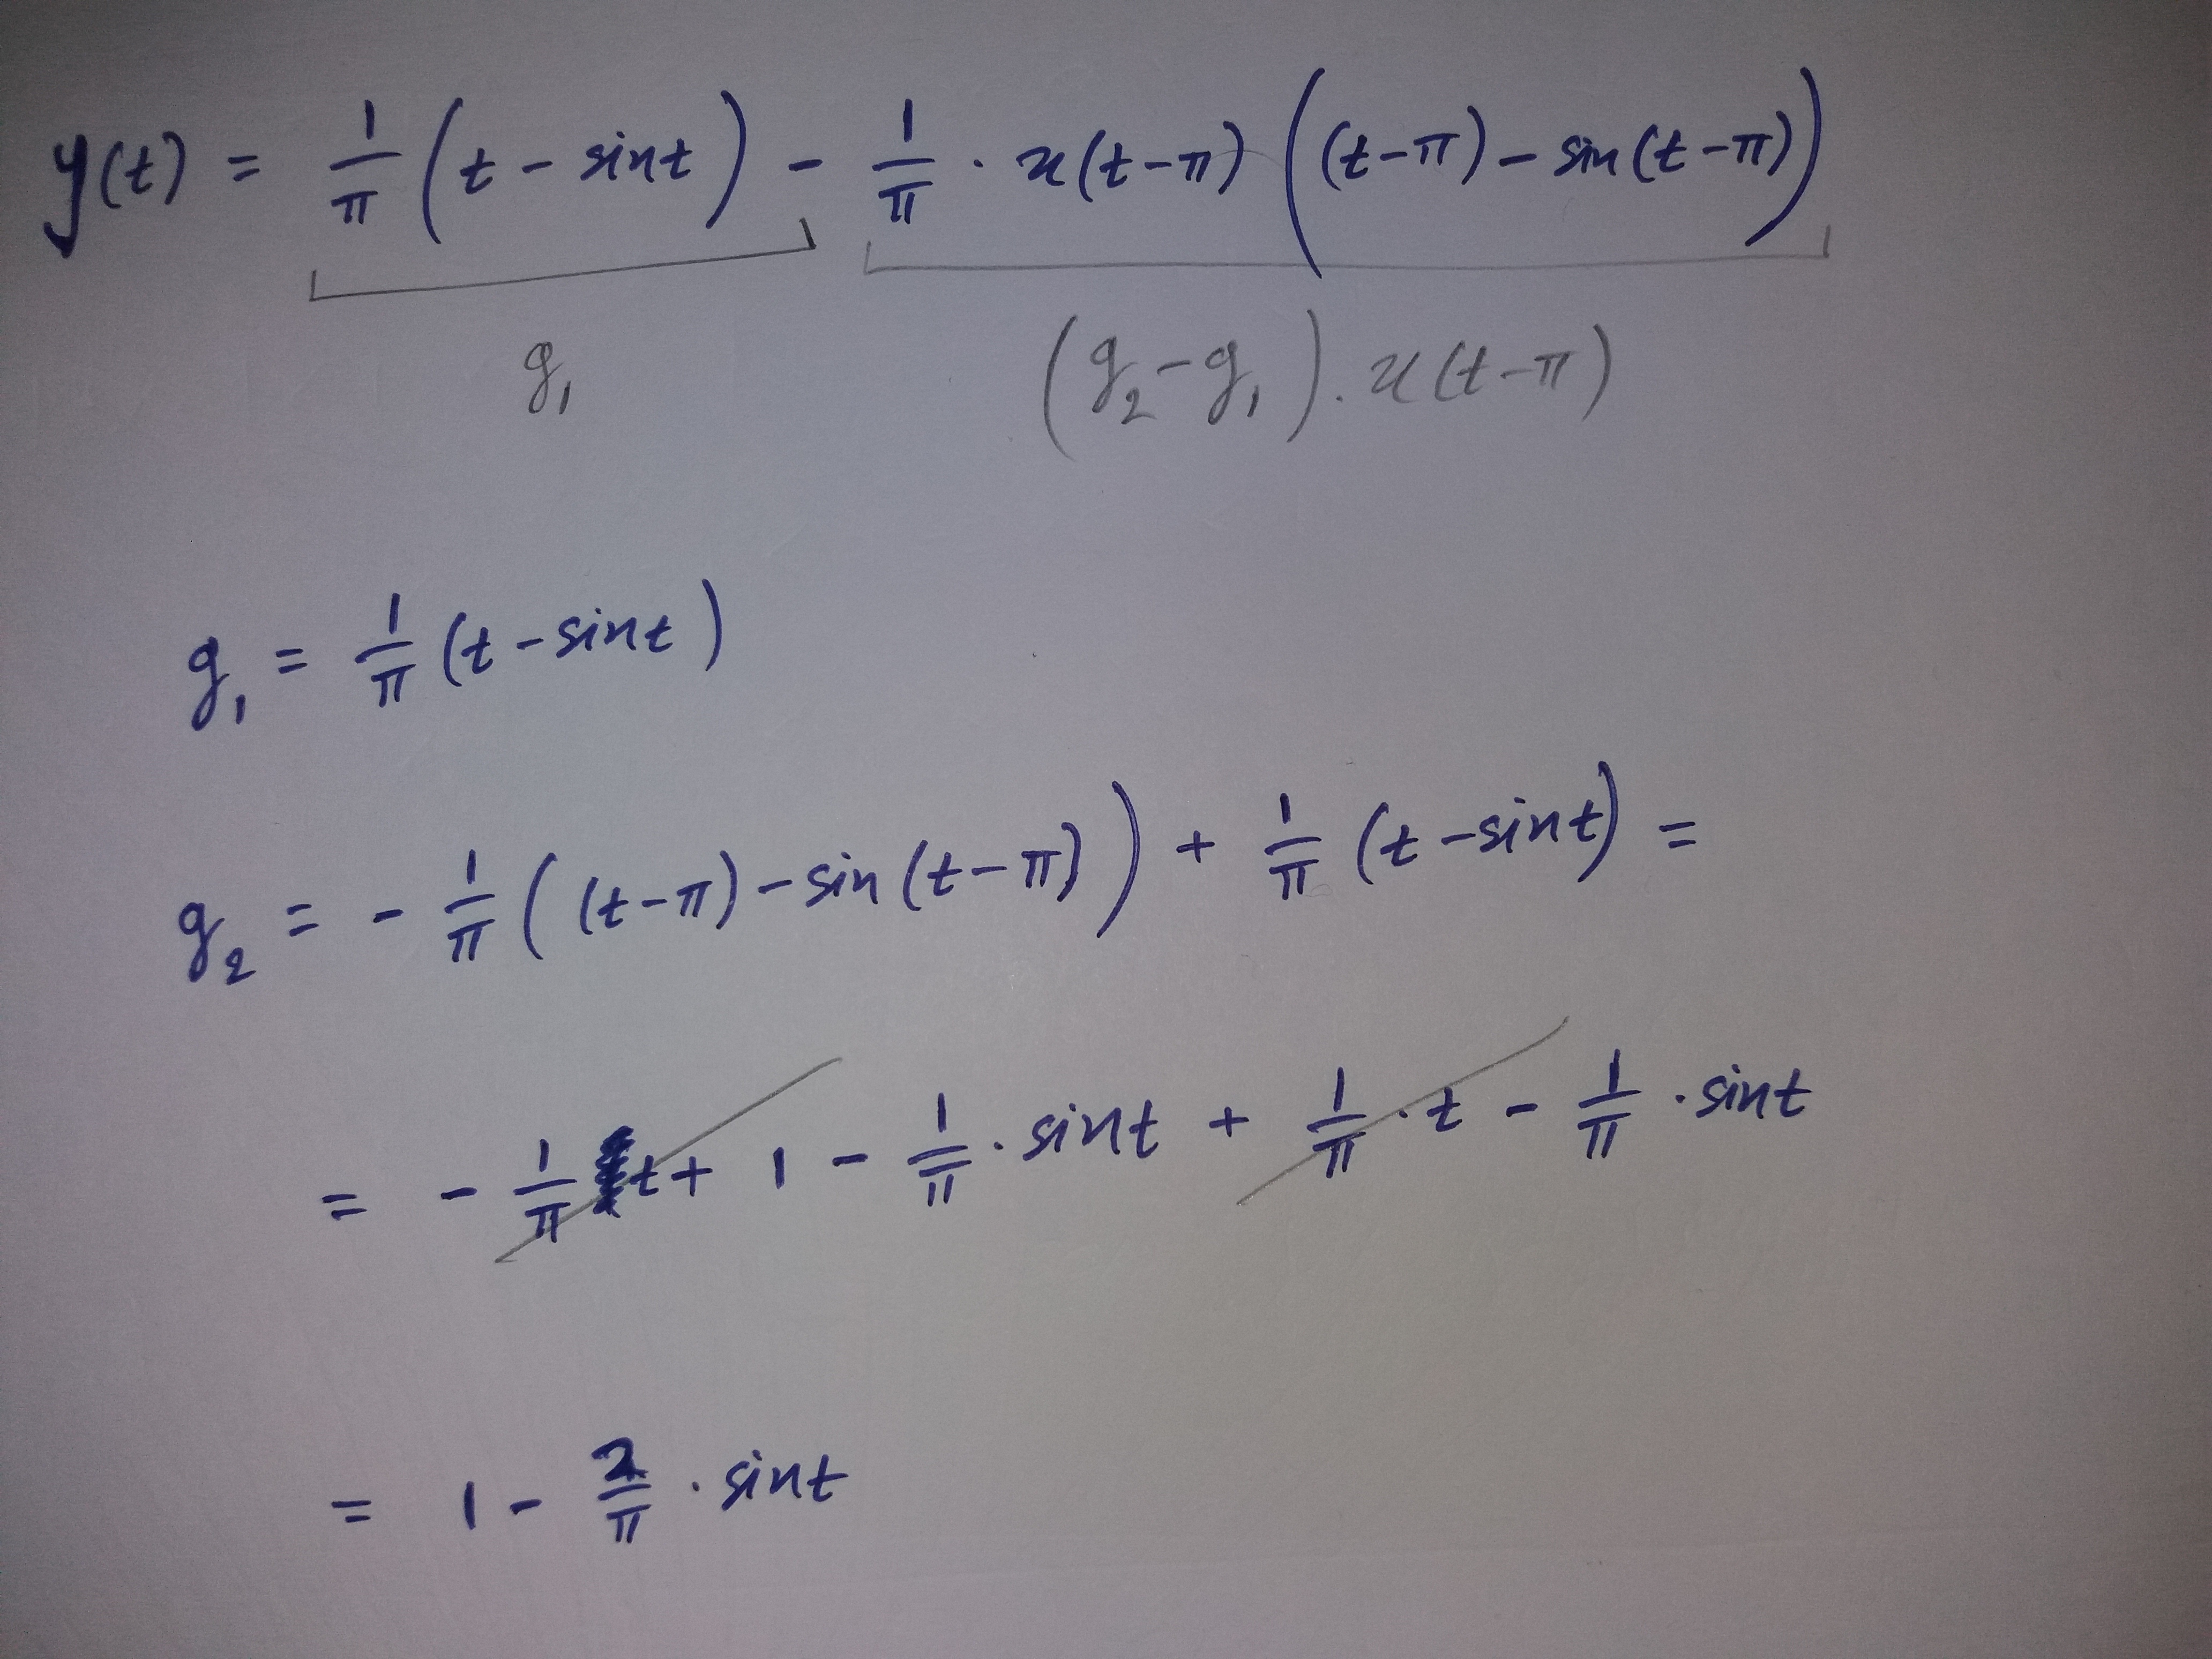 y(t) = 1/π (t - sin t) - 1/π · u(t-π) ((t-π) - sin(t-π))
g₁ (g₂-g₁) · u(t-π)
g₁ = 1/π (t - sin t)
g₂ = - 1/π ((t-π) - sin(t-π)) + 1/π (t - sin t) =
= - 1/π t + 1 - 1/π · sin t + 1/π · t - 1/π · sin t
= 1 - 2/π · sin t